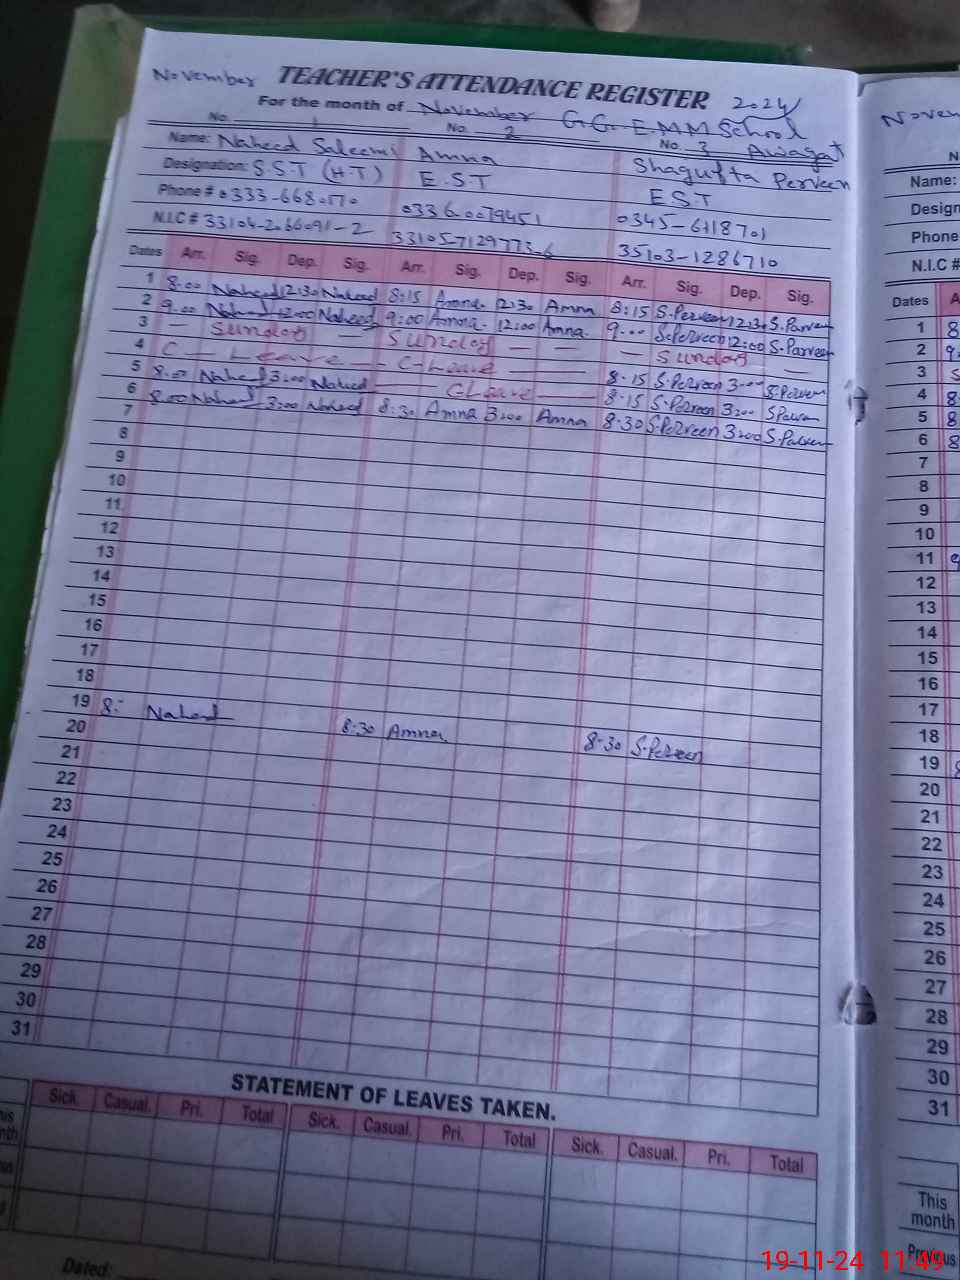 November TEACHER'S ATTENDANCE REGISTER 2024
For the month of November G.G.E.M.M School
No. 1 No. 2 No. 3 Awagat
Name: Naheed Saleemi Amna Shagufta Perveen
Designation: S.S.T (H.T) E.S.T E.S.T
Phone # 0333-6680170 03360079451 0345-6118701
N.I.C # 33104-2066091-2 33105-7129773 35103-1286710
Dates Arr. Sig. Dep. Sig. Arr. Sig. Dep. Sig. Arr. Sig. Dep. Sig.
1 8:00 Naheed 12:30 Naheed 8:15 Amna 12:30 Amna 8:15 S.Perveen 12:30 S.Parveen
2 9:00 Naheed 12:00 Naheed 9:00 Amna 12:00 Amna 9:00 S.Perveen 12:00 S.Parveen
3 — Sunday — Sunday — — — Sunday —
4 C — Leave — C-Leave — 8-15 S.Perveen 3:00 S.Perveen
5 8:00 Naheed 3:00 Naheed — C Leave — 8-15 S.Perveen 3:00 S.Parveen
6 8:00 Naheed 3:00 Naheed 8:30 Amna 3:00 Amna 8-30 S.Perveen 3:00 S.Parveen
7
8
9
10
11
12
13
14
15
16
17
18
19 8: Naheed 8:30 Amna 8-30 S.Perveen
20
21
22
23
24
25
26
27
28
29
30
31
STATEMENT OF LEAVES TAKEN.
Sick. Casual. Pri. Total Sick. Casual. Pri. Total Sick. Casual. Pri. Total
Dated:
Name:
Phone
N.I.C #
Dates
1 8
2 9
3 S
4 8
5 8
6 8
7
8
9
10
11 9
12
13
14
15
16
17
18
19 8
20
21
22
23
24
25
26
27
28
29
30
31
This
month
Previous
19-11-24 11:49